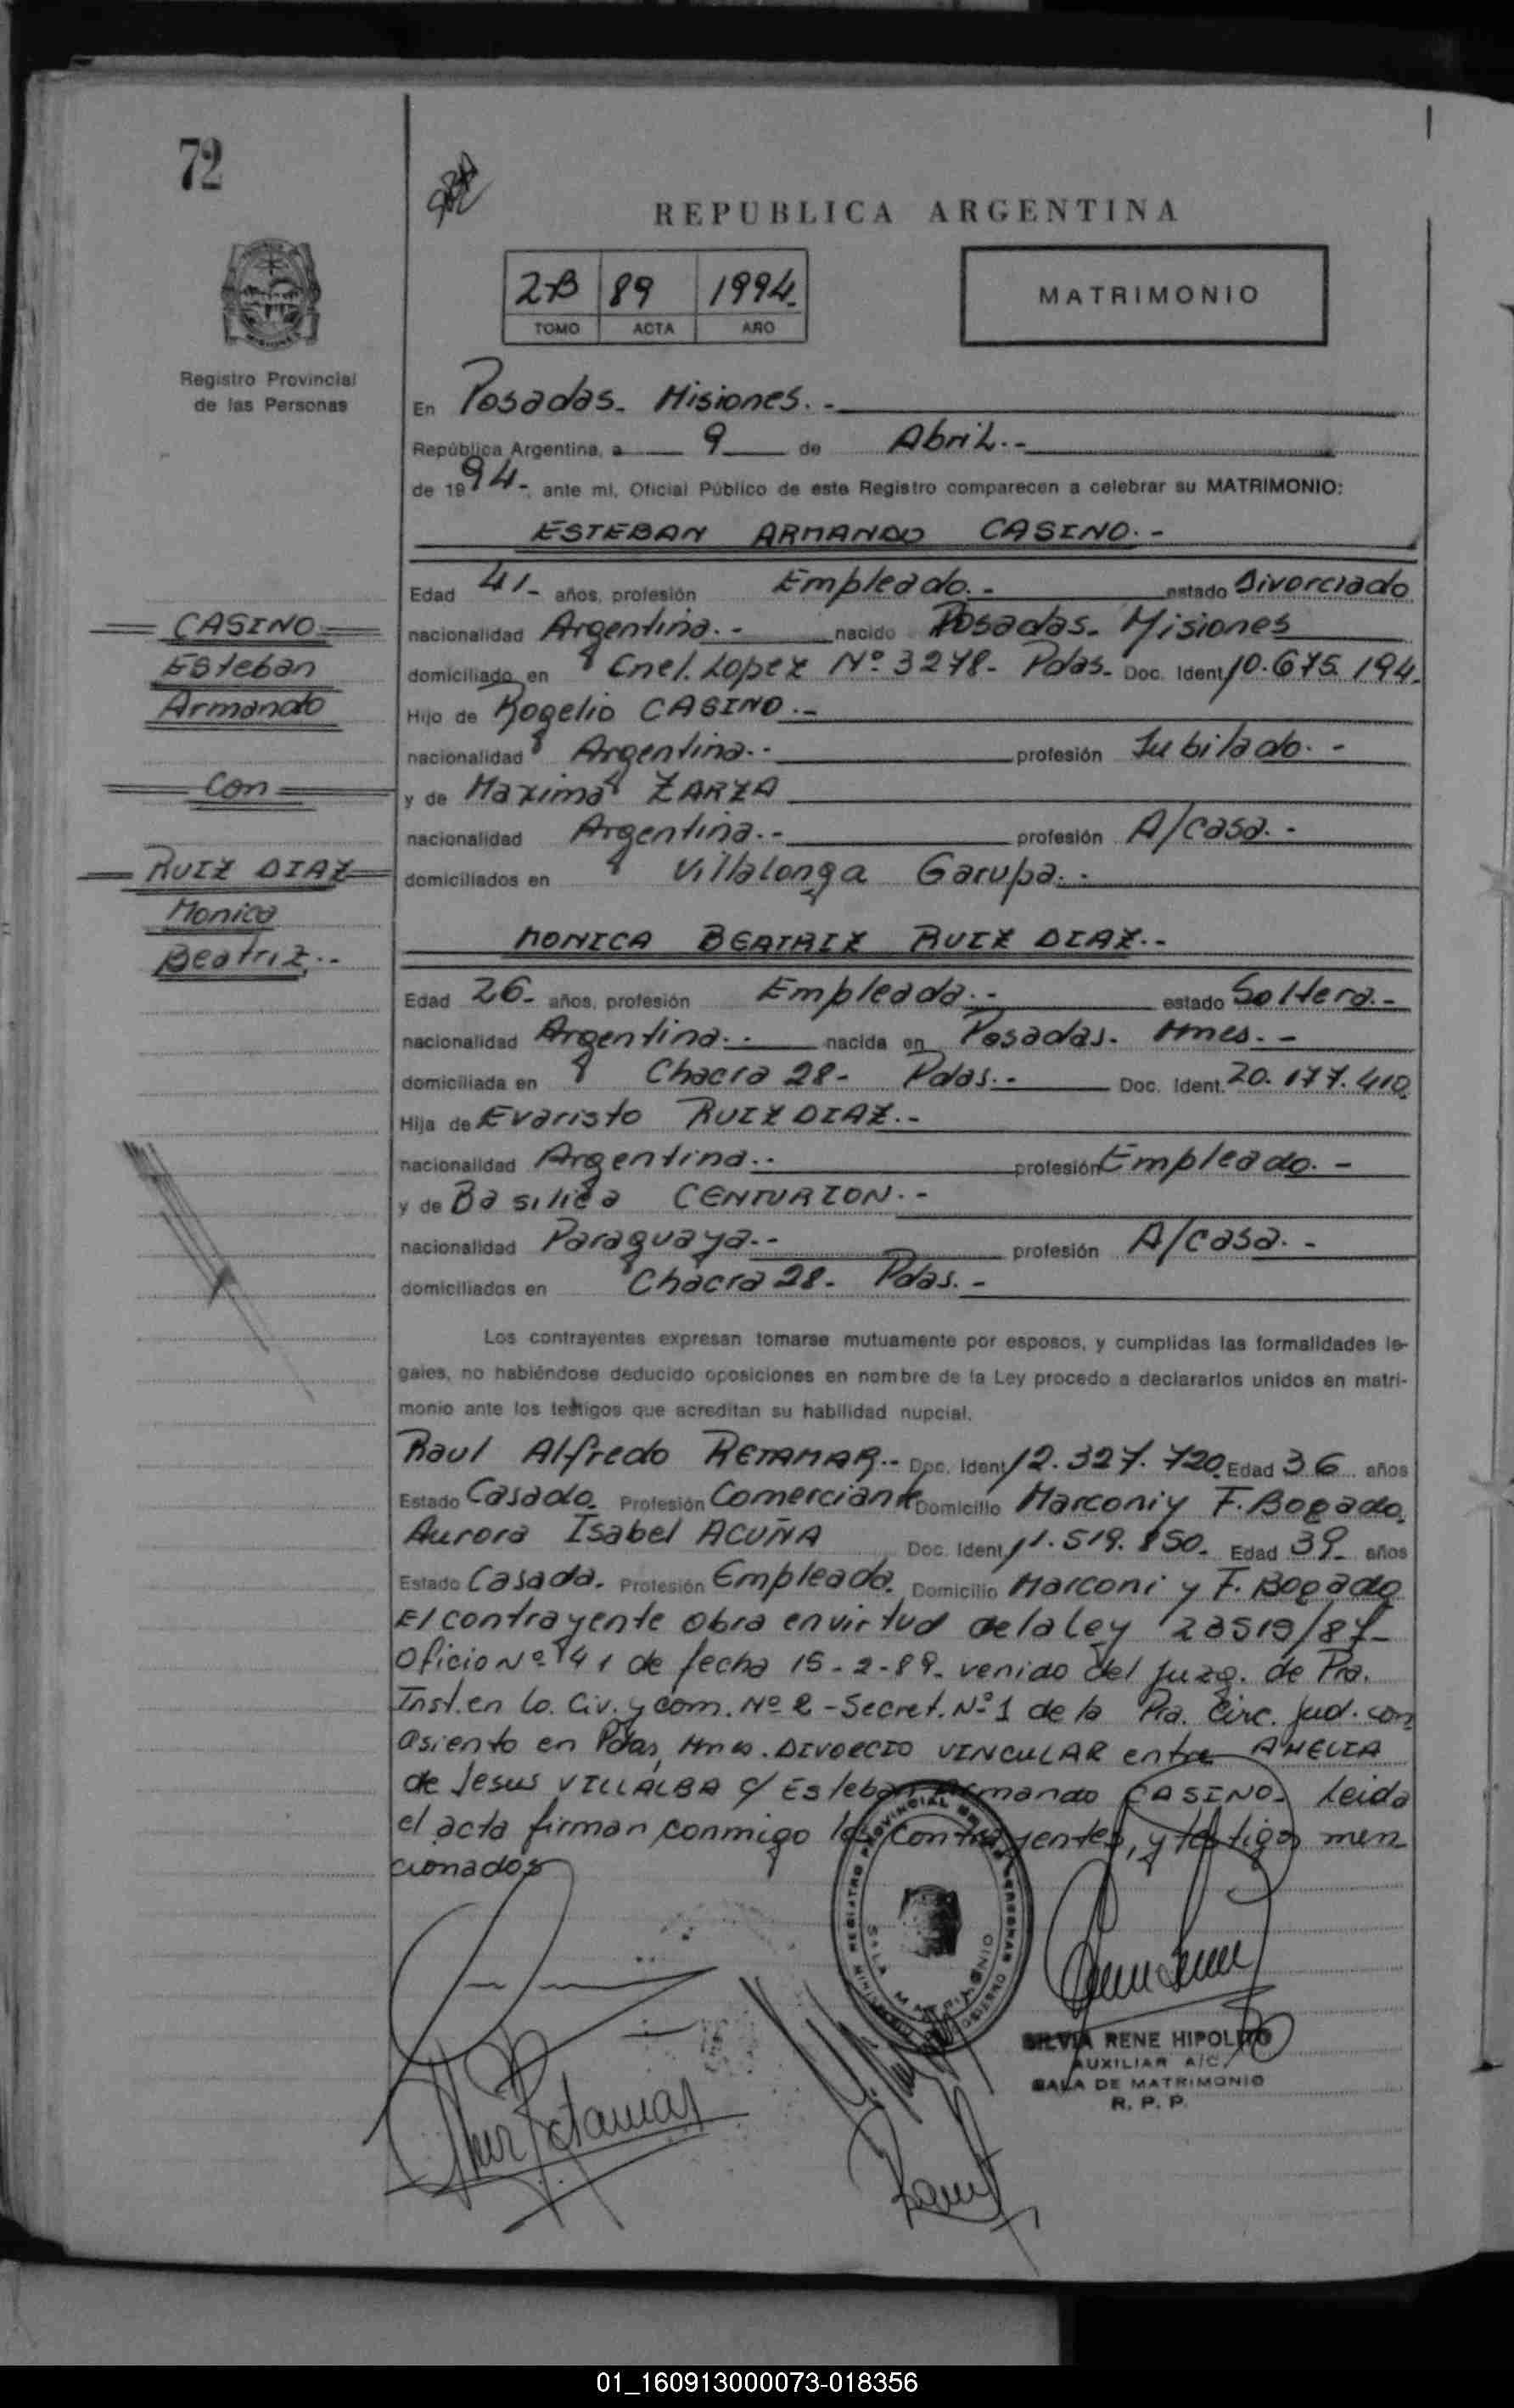 72
REPUBLICA ARGENTINA
2-B 89 1994.
TOMO ACTA AÑO
MATRIMONIO
Registro Provincial
de las Personas
En Posadas. Misiones.-
República Argentina, a 9 de Abril.-
de 1994-, ante mi, Oficial Público de este Registro comparecen a celebrar su MATRIMONIO:
ESTEBAN ARMANDO CASINO.-
Edad 41- años, profesión Empleado.- estado Divorciado
CASINO
nacionalidad Argentina.- nacido Posadas. Misiones
Esteban
domiciliado en Cnel. Lopez Nº 3278- Pdas. Doc. Ident. 10.675.194.
Armando
Hijo de Rogelio CASINO.-
nacionalidad Argentina.- profesión Jubilado.-
Con
y de Maxima ZARZA
nacionalidad Argentina.- profesión A/casa.-
RUIZ DIAZ
domiciliados en Villalonga Garupa.-
Monica
MONICA BEATRIZ RUIZ DIAZ.-
Beatriz.-
Edad 26- años, profesión Empleada.- estado Soltera.-
nacionalidad Argentina.- nacida en Posadas. Mnes.-
domiciliada en Chacra 28- Pdas.- Doc. Ident. 20.177.410.
Hija de Evaristo RUIZ DIAZ.-
nacionalidad Argentina.- profesión Empleado.-
y de Basilica CENTURION.-
nacionalidad Paraguaya.- profesión A/casa.-
domiciliados en Chacra 28- Pdas.-
Los contrayentes expresan tomarse mutuamente por esposos, y cumplidas las formalidades le-
gales, no habiéndose deducido oposiciones en nombre de la Ley procedo a declararlos unidos en matri-
monio ante los testigos que acreditan su habilidad nupcial.
Raul Alfredo RETAMAR.- Doc. Ident. 12.327.720. Edad 36 años
Estado Casado. Profesión Comerciante Domicilio Marconi y F. Bogado.
Aurora Isabel ACUÑA Doc. Ident. 11.519.850. Edad 39- años
Estado Casada. Profesión Empleada. Domicilio Marconi y F. Bogado
El contrayente obra en virtud de la Ley 23519/87-
Oficio Nº 141 de fecha 15-2-89. venido del Juzg. de Pra.
Inst. en lo. Civ. y com. Nº 2 - Secret. Nº 1 de la Pra. Circ. Jud. con
asiento en Pdas, Mnes. DIVORCIO VINCULAR entre AMELIA
de Jesus VILLALBA c/ Esteban Armando CASINO. Leida
el acta firman conmigo los contrayentes, y testigos men
cionados
SALA MATRIMONIO
SILVIA RENE HIPOLITO
AUXILIAR A/C.
SALA DE MATRIMONIO
R. P. P.
01_160913000073-018356